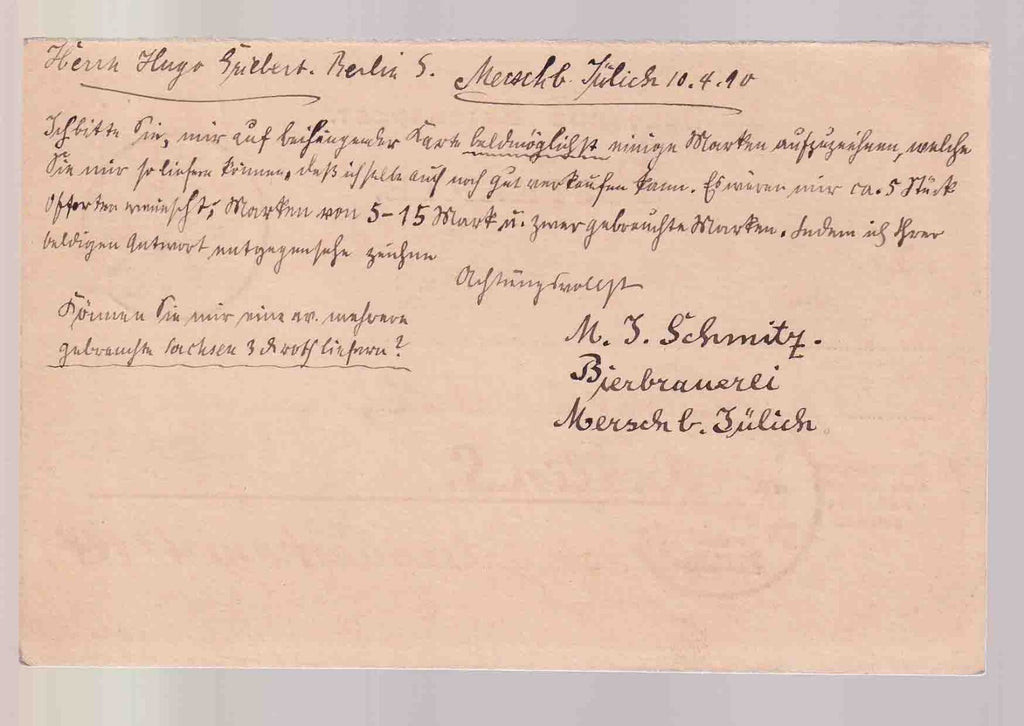 Herrn Hugo Siebert. Berlin S. Mersch b. Jülich 10.4.90
Ich bitte Sie, mir auf beihängender Karte baldmöglichst einige Marken aufzuzeichnen, welche
Sie mir so liefern können, daß ich selbe auch noch gut verkaufen kann. Es wären mir ca. 5 Stück
Offerten erwünscht, Marken von 5-15 Mark u. zwar gebrauchte Marken. Indem ich Ihrer
baldigen Antwort entgegensehe zeichne
Achtungsvollst
Können Sie mir eine ev. mehrere
gebrauchte Sachsen 3 roth liefern?
M. J. Schmitz.
Bierbrauerei
Mersch b. Jülich